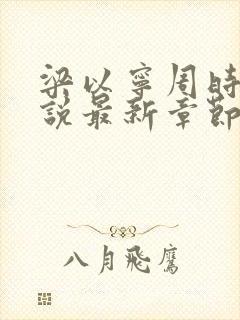 梁以寧周時
說最新章節
八月飛鷹